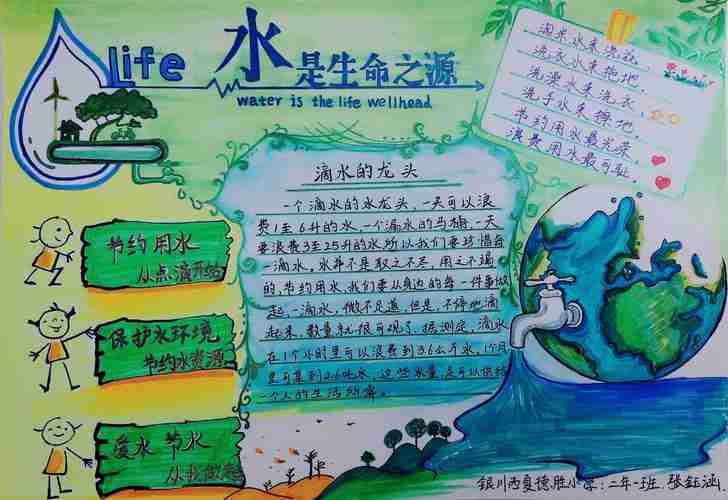 Life 水是生命之源
water is the life wellhead
淘米水来浇花、
洗衣水来拖地、
洗澡水来洗衣、
洗手水来擦地、
节约用水最光荣、
浪费用水最可耻。
滴水的龙头
一个滴水的水龙头，一天可以浪
费1至6升的水，一个漏水的马桶，一天
要浪费3至25升的水所以我们要珍惜每
一滴水，水并不是取之不尽，用之不竭
的，节约用水，我们要从身边的每一件事做
起，一滴水，微不足道，但是，不停地滴
起来，数量就很可观了，据测定，滴水
在1个小时里可以浪费到3.6公斤水，1个月
里可集到2.6吨水，这些水量，足可以供给
一个人的生活所需。
节约用水
从点滴开始
保护水环境
节约水资源
爱水 节水
从我做起
银川西夏德胜小学：二年一班 张钰涵